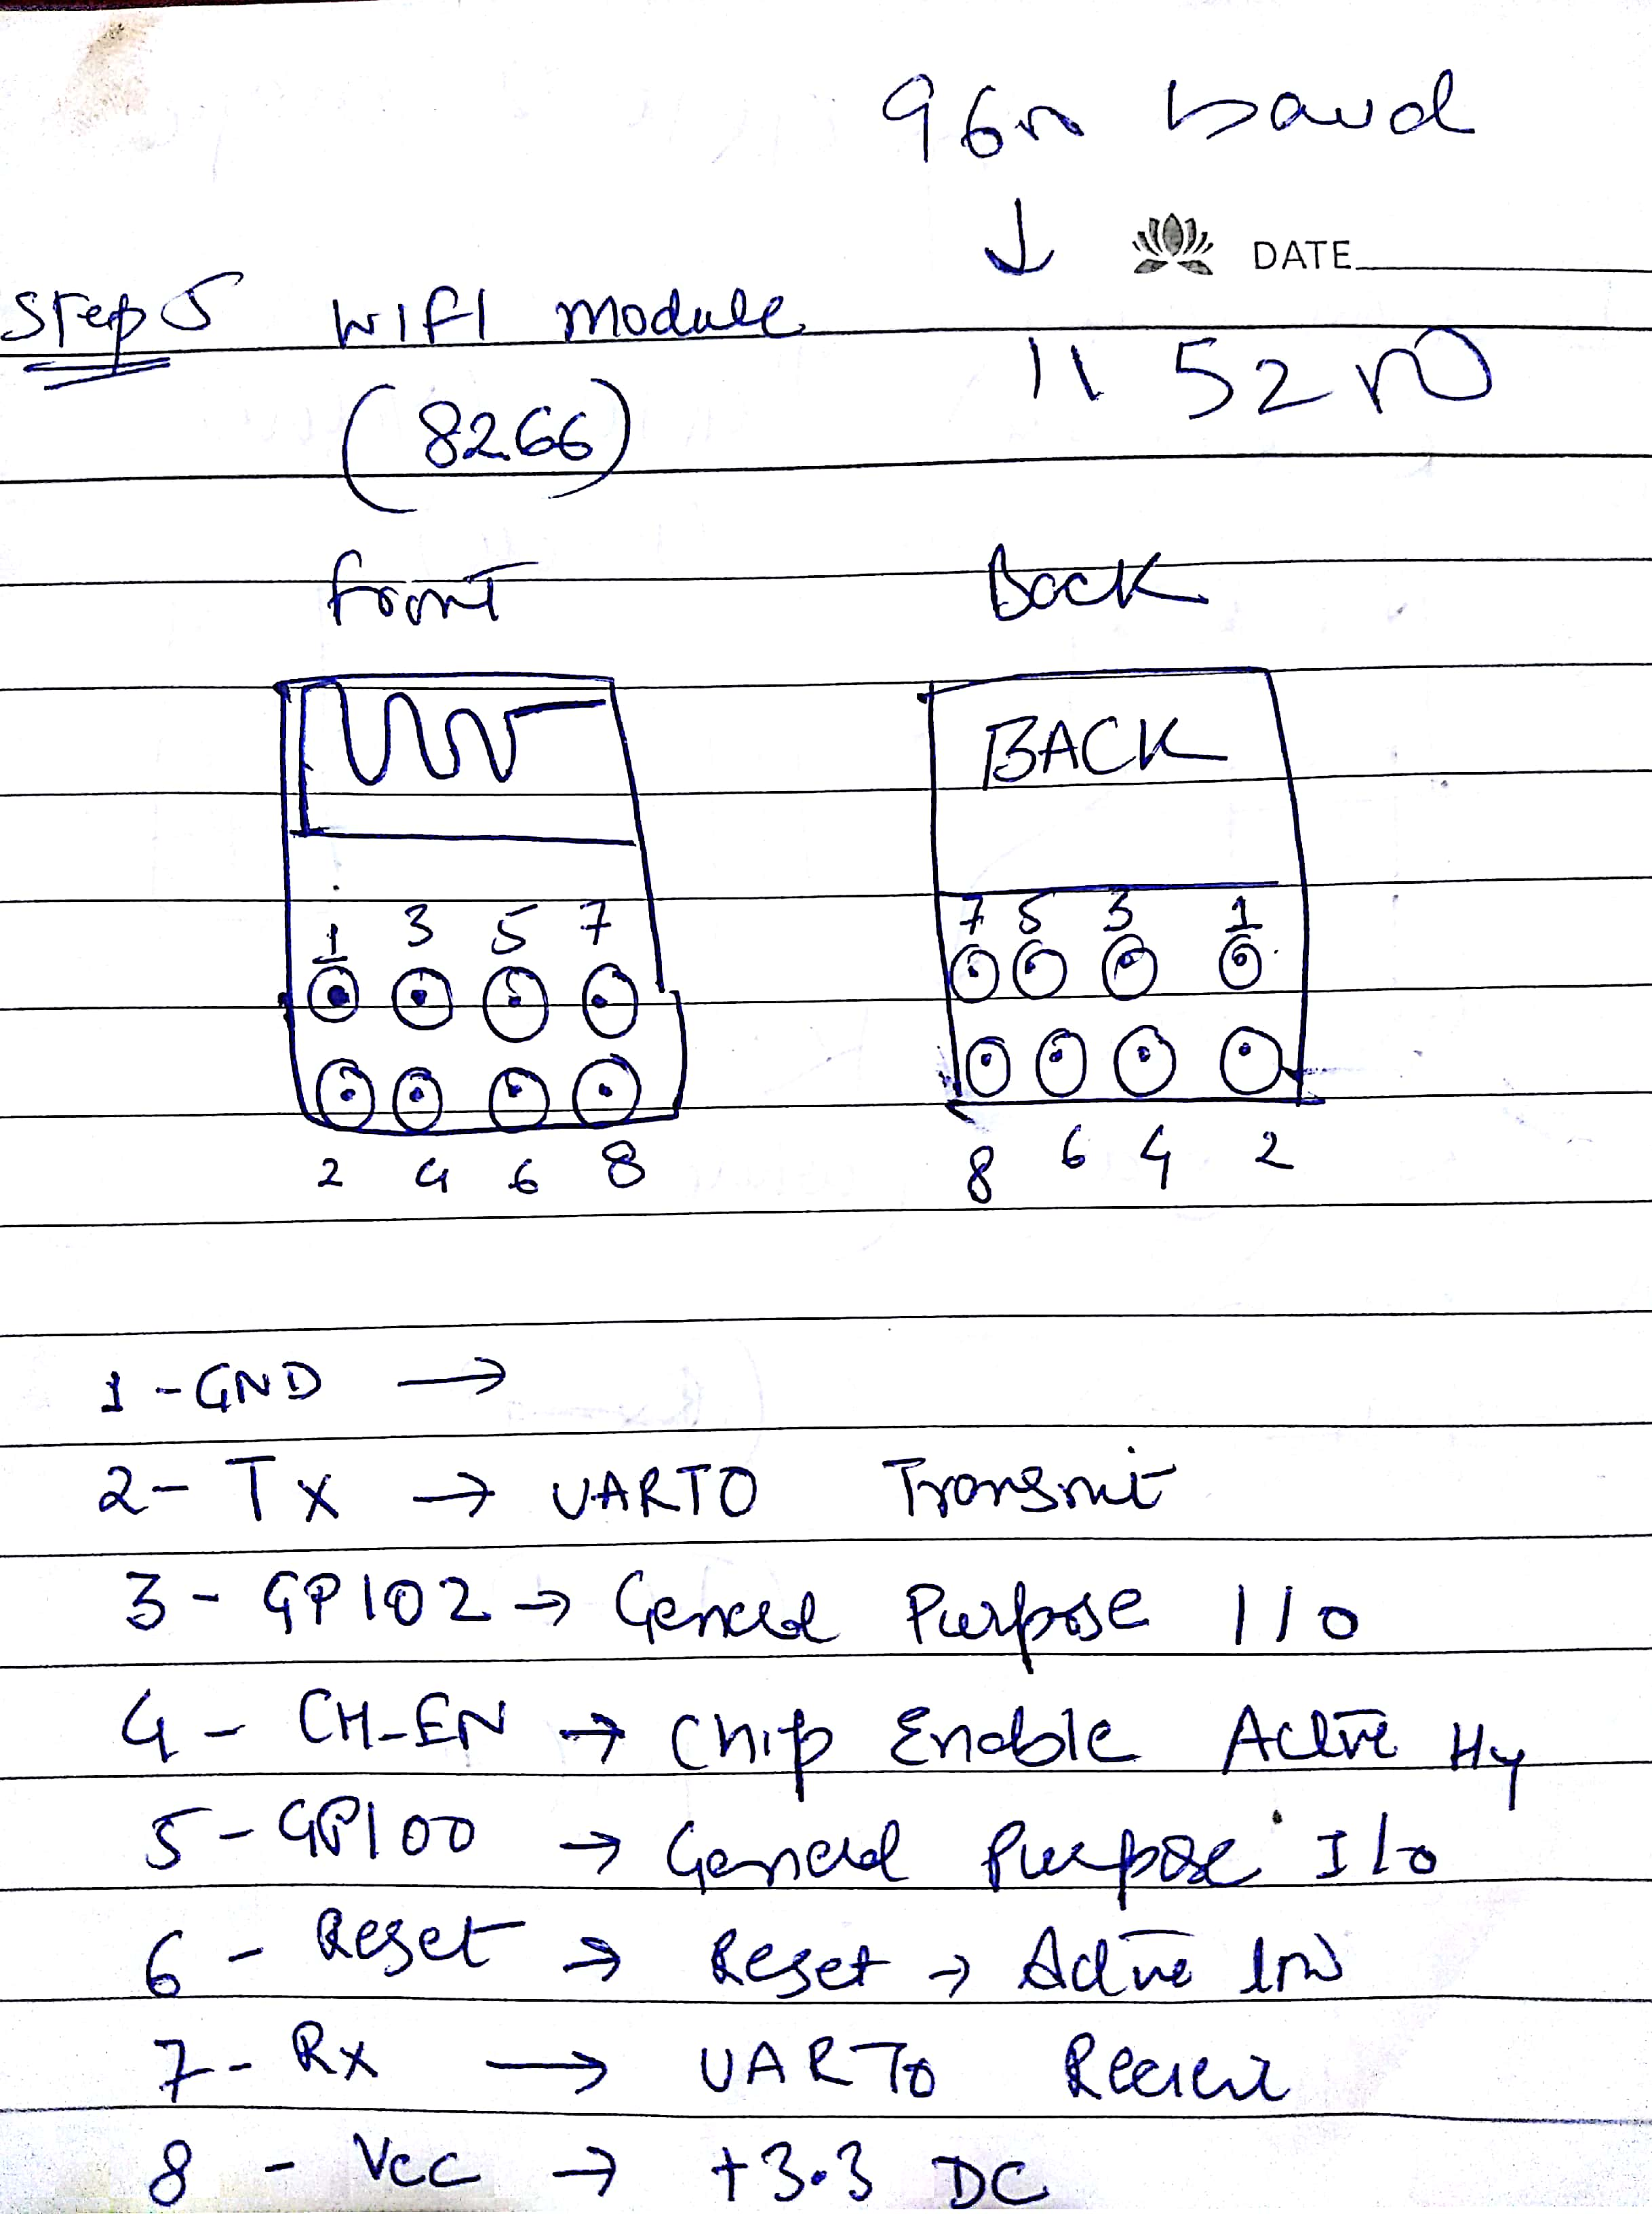 9600 baud
↓ DATE
Step 5 WIFI module
115200
(8266)
Front Back
BACK
1 3 5 7
7 5 3 1
2 4 6 8
8 6 4 2
1 - GND →
2 - Tx → UART0 Transmit
3 - GPIO2 → General Purpose I/O
4 - CH-EN → Chip Enable Active
5 - GPIO0 → General Purpose I/O
6 - Reset → Reset → Active low
7 - Rx → UART0 Receive
8 - Vcc → +3.3 DC